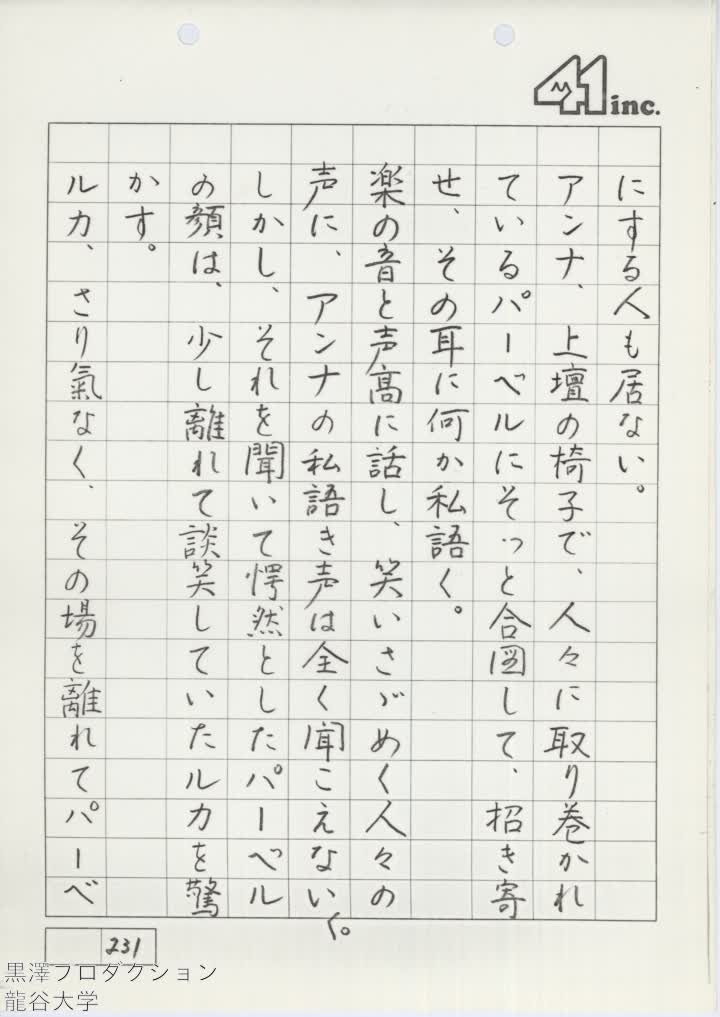 41 inc.
にする人も居ない。
アンナ、上壇の椅子で、人々に取り巻かれ
ているパーベルにそっと合図して、招き寄
せ、その耳に何か私語く。
楽の音と声高に話し、笑いさゞめく人々の
声に、アンナの私語き声は全く聞こえない。
しかし、それを聞いて愕然としたパーベル
の顔は、少し離れて談笑していたルカを驚
かす。
ルカ、さり氣なく、その場を離れてパーベ
231
黒澤プロダクション
龍谷大学